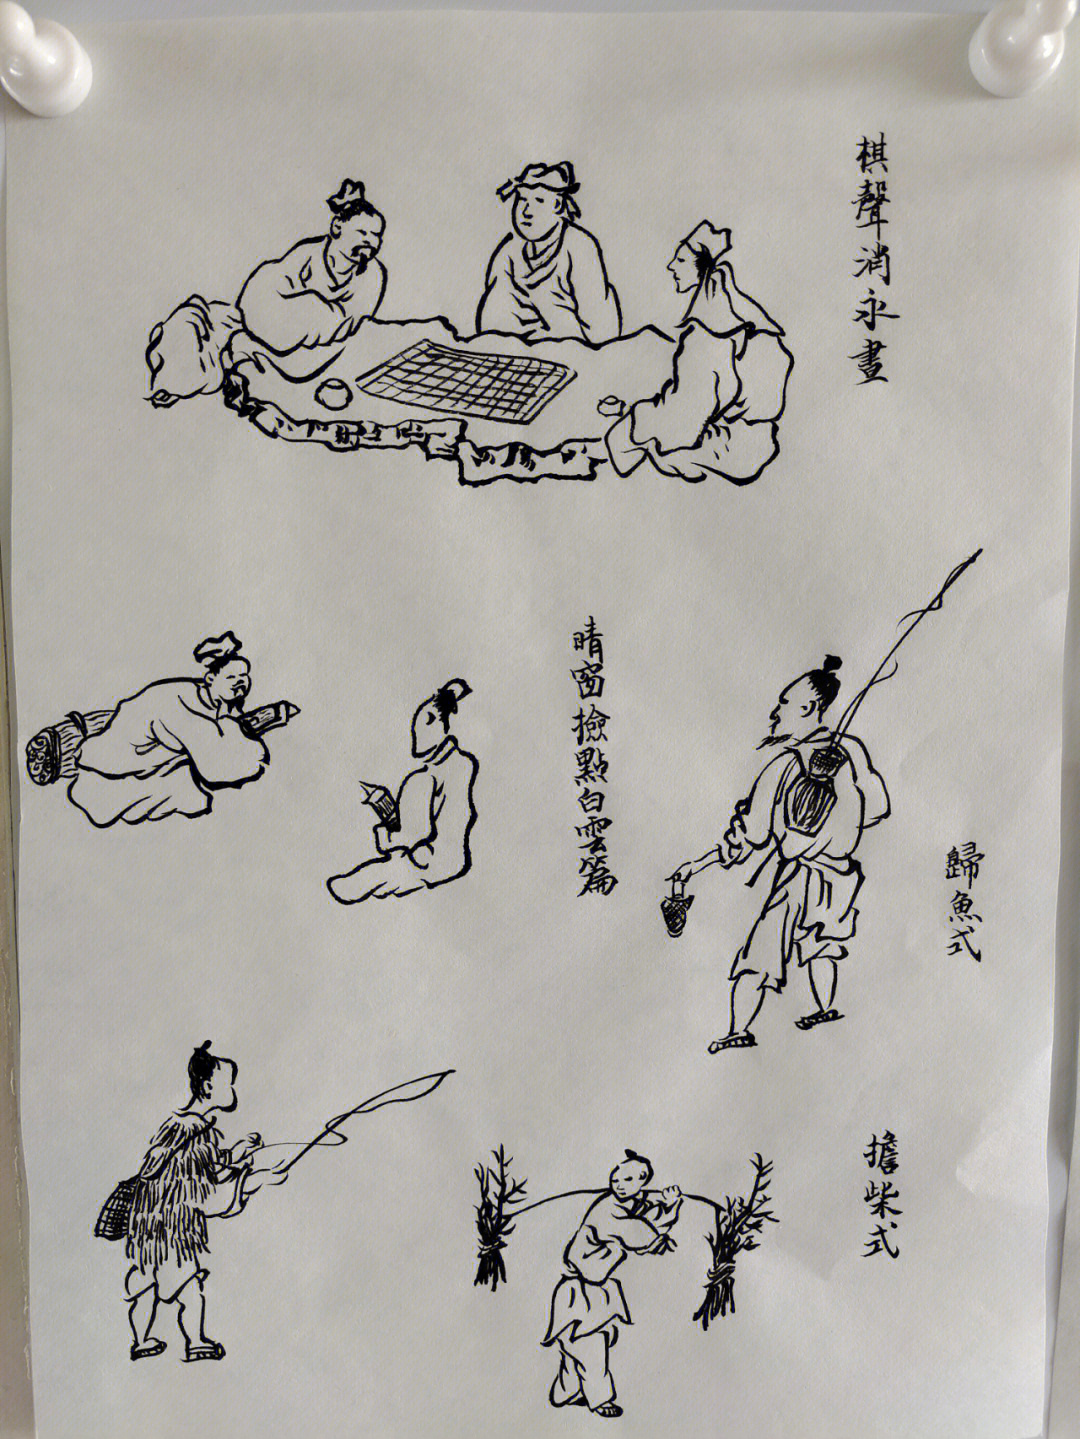 棋聲消永晝
晴窗撿點白雲篇
歸魚式
擔柴式